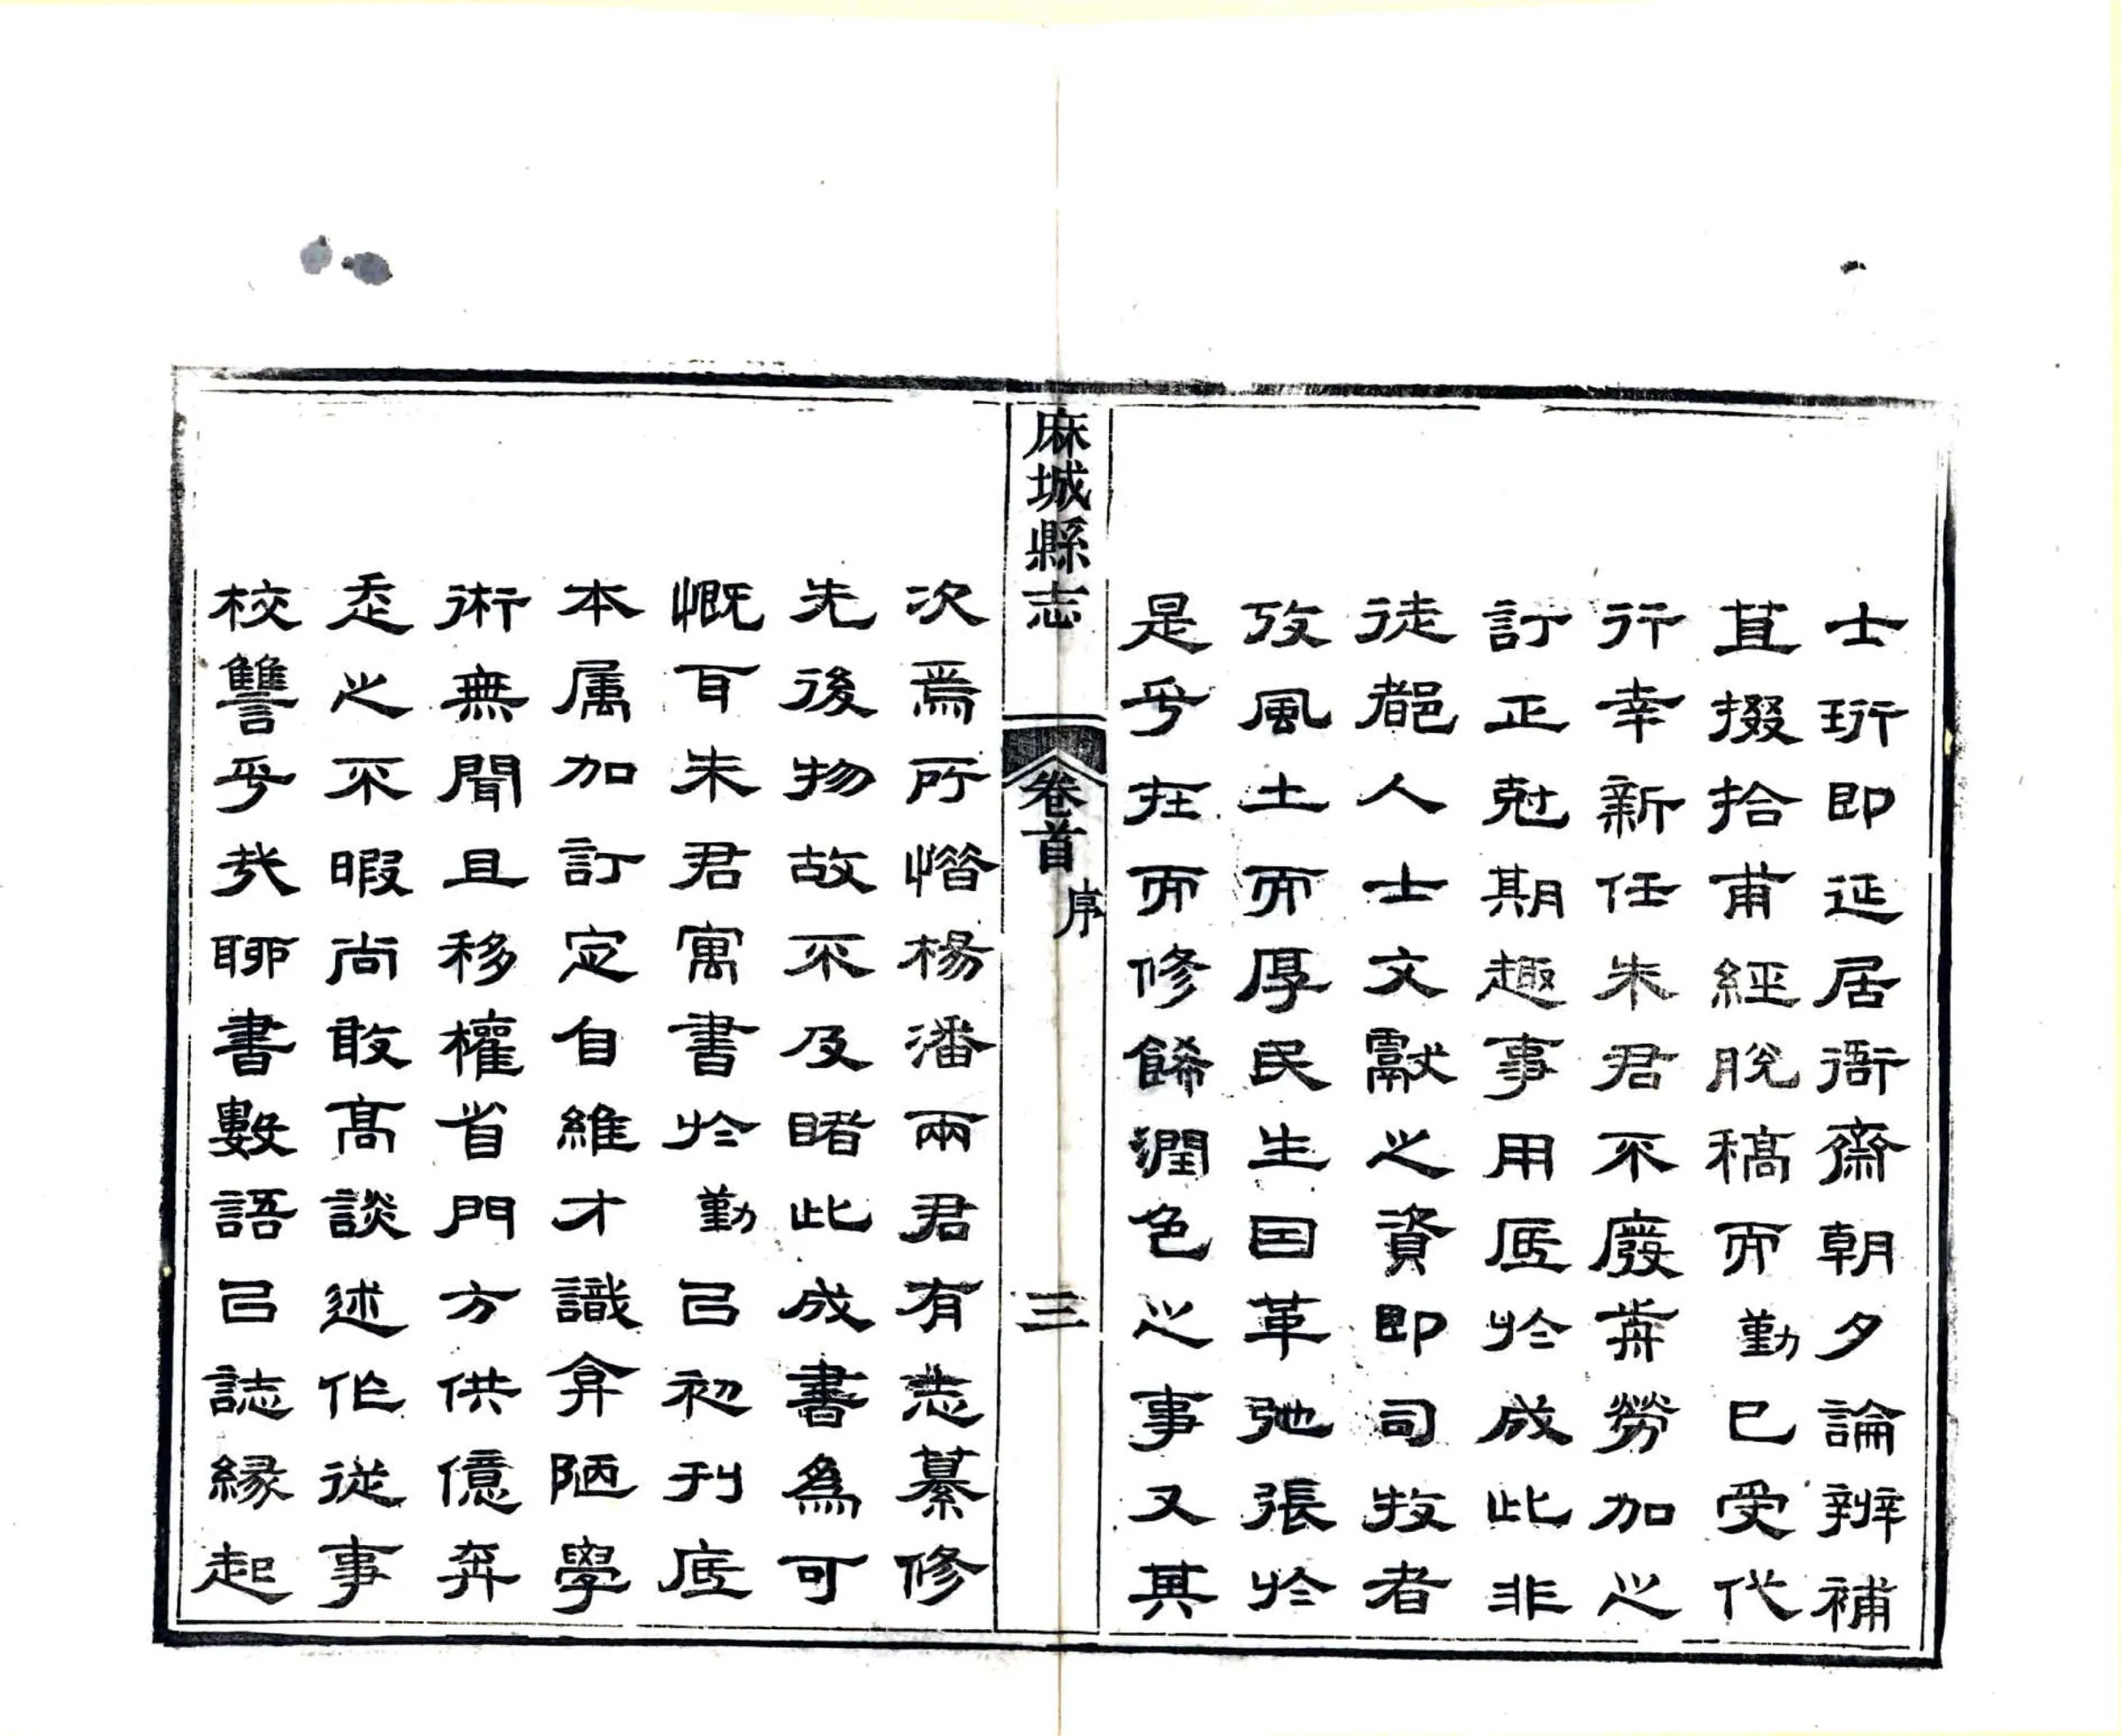 士珩即延居衙齋朝夕論辨補
苴掇拾甫經脫稿而勤已受代
行幸新任朱君不廢葑勞加之
訂正尅期趣事用匠於成此非
徒邑人士文獻之資即司牧者
攷風土而厚民生因革弛張於
是乎在而修飾潤色之事又其
麻城縣志
卷首
序
三
次焉所惜楊潘兩君有志纂修
先後物故不及睹此成書為可
慨耳朱君寓書於勤己初刊底
本属加訂定自維才識弇陋學
術無聞且移權省門方供億奔
走之不暇尚敢高談述作從事
校讐乎哉聊書數語己誌緣起